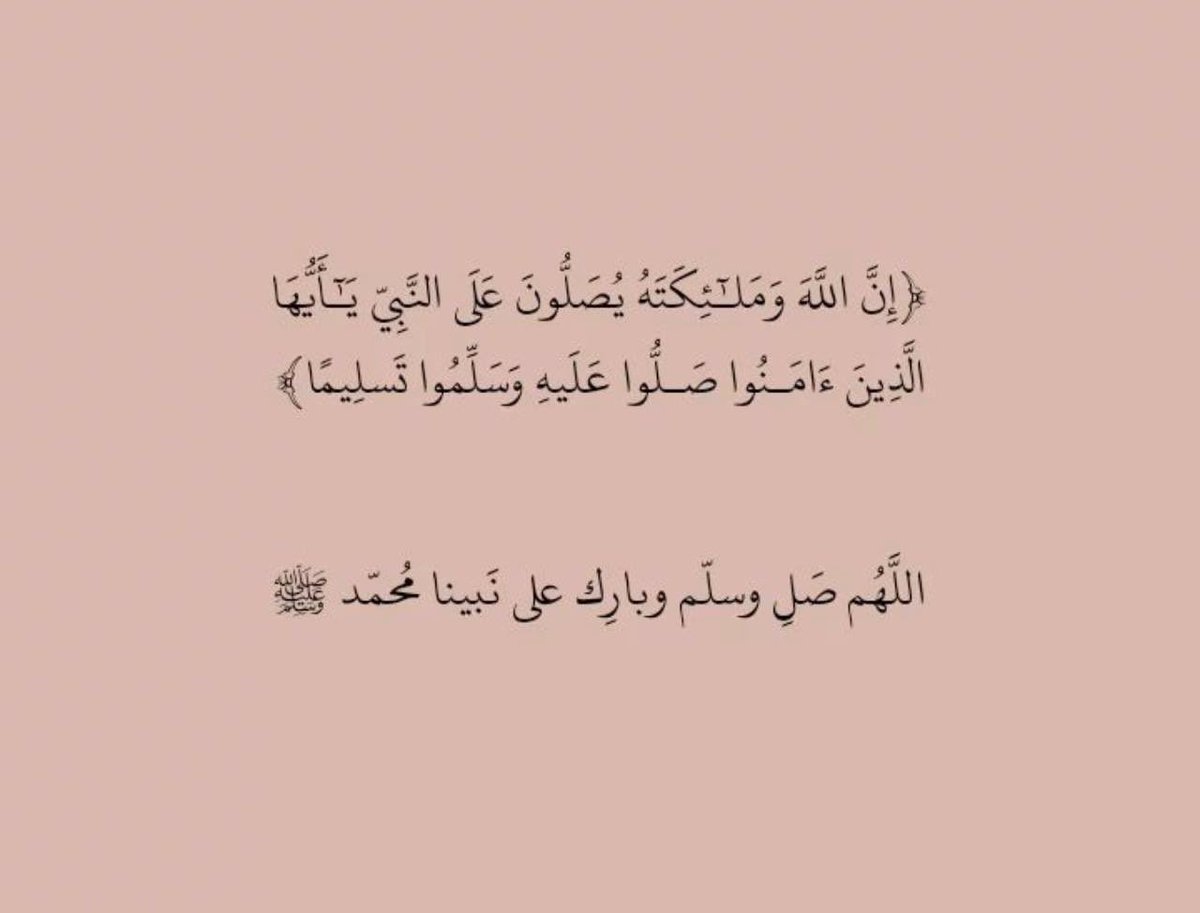 ﴿إِنَّ اللَّهَ وَمَلـٰٓئِكَتَهُ يُصَلُّونَ عَلَى النَّبِيّ يَـٰٓأَيُّهَا
الَّذِينَ ءَامَـنُوا صَـلُّوا عَلَيهِ وَسَلِّمُوا تَسلِيمًا﴾
اللَّهُم صَلِ وسلّم وبارِك على نَبينا مُحمّد ﷺ